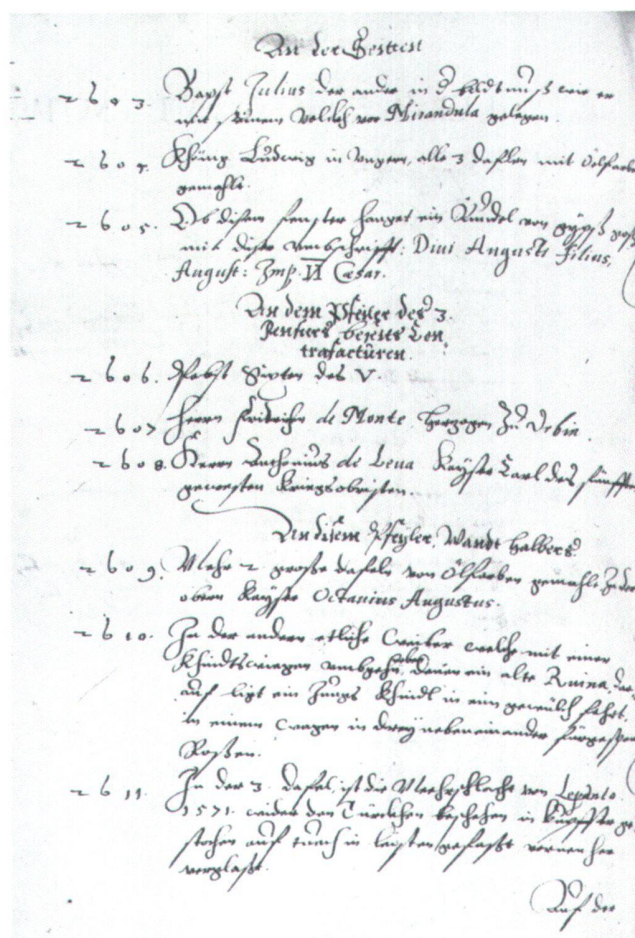 An der Seitten
2603. Bapst Julius der ander in d' bildtnuß wie er
mit seinem Volckh vor Mirandula gelegen
2604. Khünig Ludwig in Ungern, alle 3 daflen mit Ölfarb
gemahlt.
2605. Ob disem fenster hanget ein Rundel von gipß goß
mit diser umbschrifft: Divi Augusti Filius,
August: Imp. VI Cæsar.
An dem Pfeyler des 3.
Fensters beseits Con
trafactüren.
2606. Pabst Sixten des V.
2607 Herrn Fridrichen de Monte herzogen zu
2608. Herrn Anthonius de Leva Kayser Carl des fünfften
gewesten kriegsobristen.
An disem Pfeyler, Wandt halbers
2609. Mehr 2 große dafeln von Ölfarben gemahlt In der
obern Kayser Octavius Augustus.
2610. In der andern etliche Weiber welche mit einer
Khindtswiegen umbgehn, ein alte Ruina, dar
auf ligt ein Jungs Khindl in ein gewülch fahrt,
in einem wagen in drey nebeneinander fürgespan
Roßen.
2611. In der 3. dafel ist die Meehrschlacht von Lepanto
1571. wider den Türckhen beschehen in kupffer ge
stochen auf tuech in leisten gefaßt vornen her
verglaßt.
Auf der